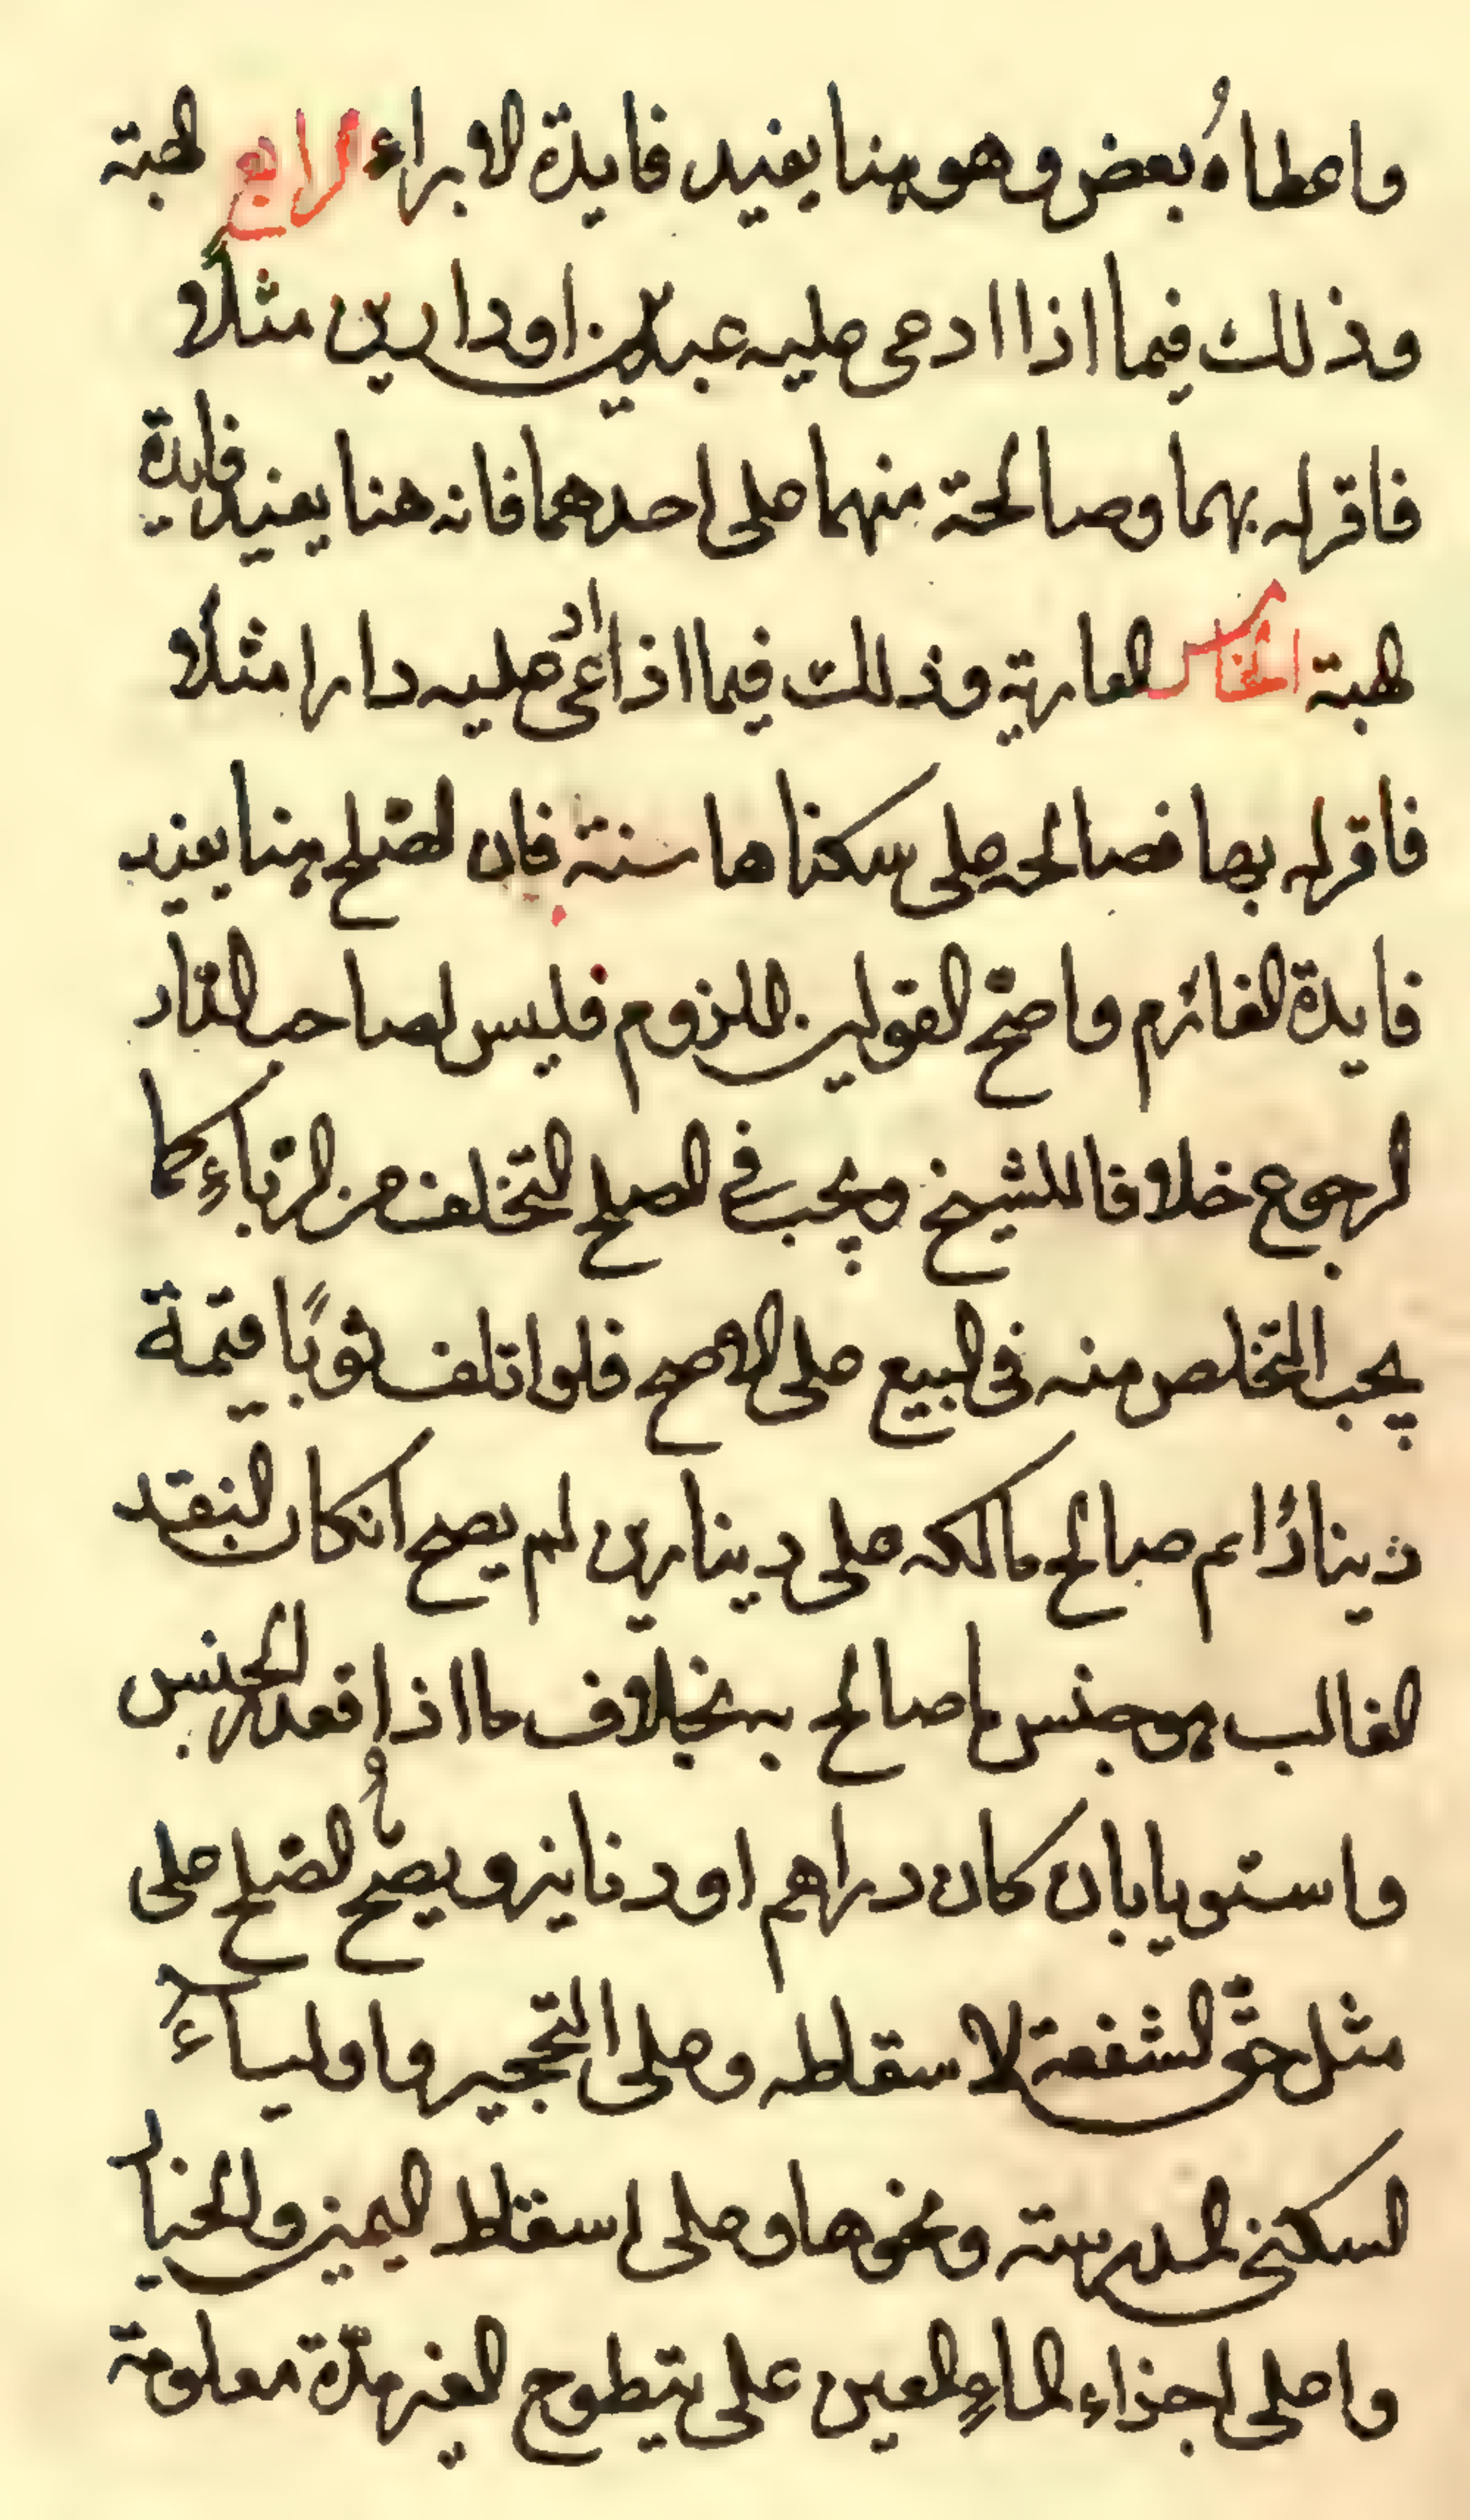 واعطاهُ بعض وهو هنا يفيد فايدة الابراء الرابع الهبة
وذلك فيما اذا ادعى عليه عبدين او دارين مثلًا
فاقر له بهما وصالحة منهما على احدهما فانه هنا يفيد فايدة
الهبة الخامس العارية وذلك فيما اذا ادعى عليه دارا مثلًا
فاقر له بها فصالحه على سكناها سنة فان الصّلح هنا يفيد
فايدة واصحّ القولين اللزوم فليس لصاحب الدّار
الرجوع خلافا للشيخ ويجب في الصلح التخلف من الرّباءِ كما
يجب التخلص منه في البيع على الاصح فلو اتلف ثوبًا قيمة
دينارًا صالح مالكه على دينارين لم يصح انكان النقد
الغالب هو جنس ما صالح به بخلاف ما اذا الجنس
واستويا بان كان دراهم او دنانير ويصحّ الصّلح على
مثل حقّ الشفعة لاسقاطه وعلى التحجير واولياءِ
السكنى المدرسته ونحوها وعلى اسقاط اليمين والخيار
واعلى اجذاء الماءِ العين على الغير مدّة معلومة